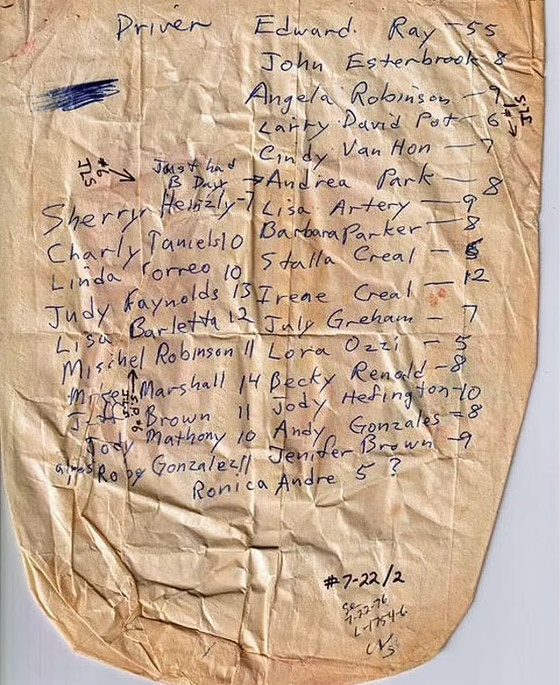 Driver Edward. Ray - 55
John Esterbrook 8
Angela Robinson - 9
Larry David Pot - 6
Cindy Van Hon - 7
Just had
B Day → Andrea Park - 8
Sherryr Heinzly - 7
Lisa Artery - 9
Charly Taniels 10
Barbara Parker - 8
Linda Torreo 10
Stalla Creal -
Judy Raynolds 13
Irene Creal - 12
Lisa Barletta 12
July Greham - 7
Mischel Robinson 11
Lora Ozzi - 5
Marshall 14
Becky Renold - 8
Brown 11
Jody Hefington - 10
Jody Mathony 10
Andy Gonzales - 8
Gonzalez 11
Jenifer Brown - 9
Ronica Andre 5 ?
#7-22/2
7-22-76